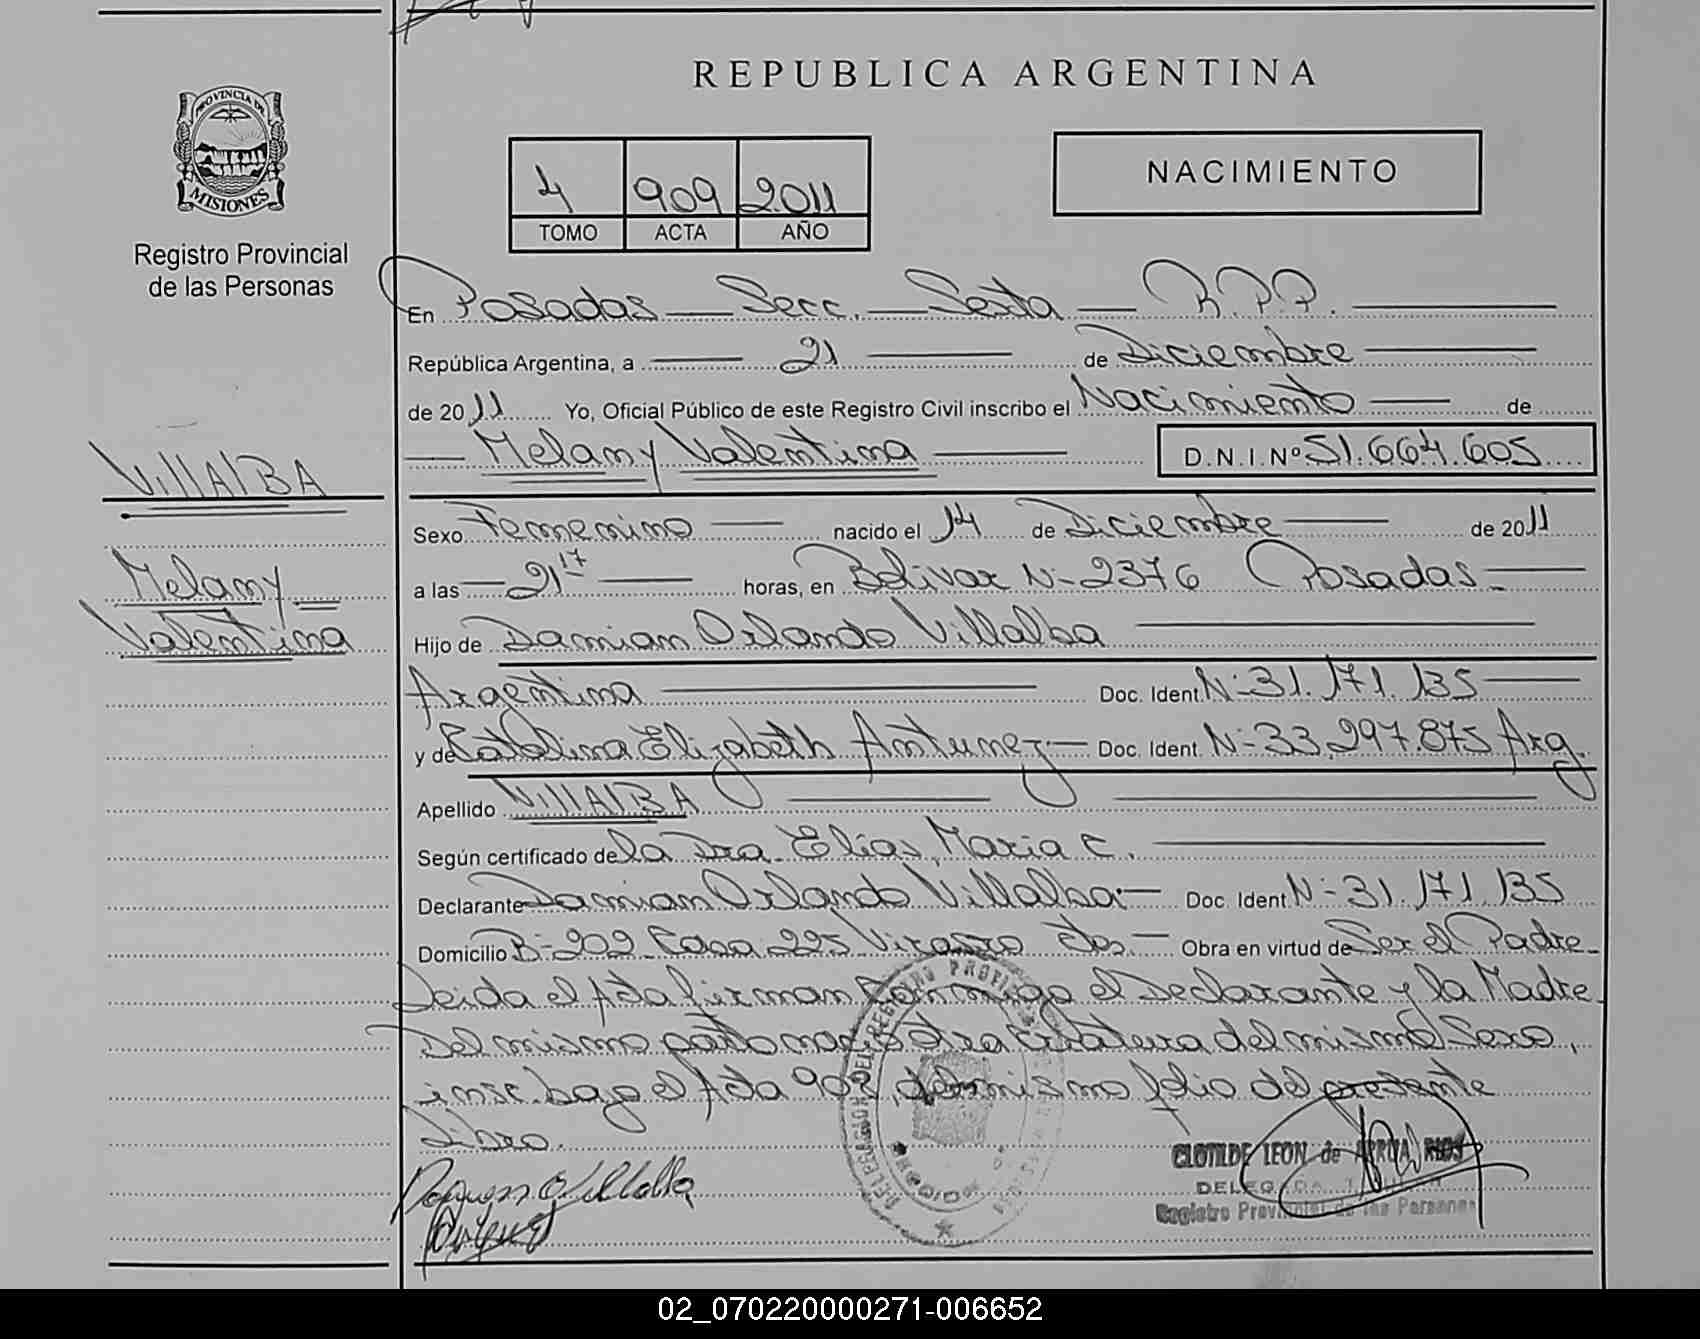 REPUBLICA ARGENTINA
PROVINCIA DE
MISIONES
Registro Provincial
de las Personas
4 909 2011
TOMO ACTA AÑO
NACIMIENTO
En Posadas — Secc. — Sexta — R.P.P.
República Argentina, a 21 de Diciembre
de 2011 Yo, Oficial Público de este Registro Civil inscribo el Nacimiento de
Melany Valentina D.N.I.Nº 51.664.605
VIllAlBA
Melany
Valentina
Sexo Femenino nacido el 14 de Diciembre de 2011
a las 21 17 horas, en Bolivar Nº 2376 Posadas
Hijo de Damian Orlando Villalba
Argentina Doc. Ident. Nº 31.171.135
y de Catalina Elizabeth Antunez Doc. Ident. Nº 33.297.875 Arg.
Apellido VIllAlBA
Según certificado de la Dra. Elías, Maria C.
Declarante Damian Orlando Villalba Doc. Ident Nº 31.171.135
Domicilio Bº 202 Casa 225 Virasoro Ctes. Obra en virtud de Ser el Padre
Leida el Acta firman conmigo el Declarante y la Madre
Del mismo parto nació otra del mismo Sexo,
insc. bajo el Acta 908, del mismo folio del presente
Libro.
CLOTILDE LEON de RIOS
Registro Provincial de las Personas
02_070220000271-006652